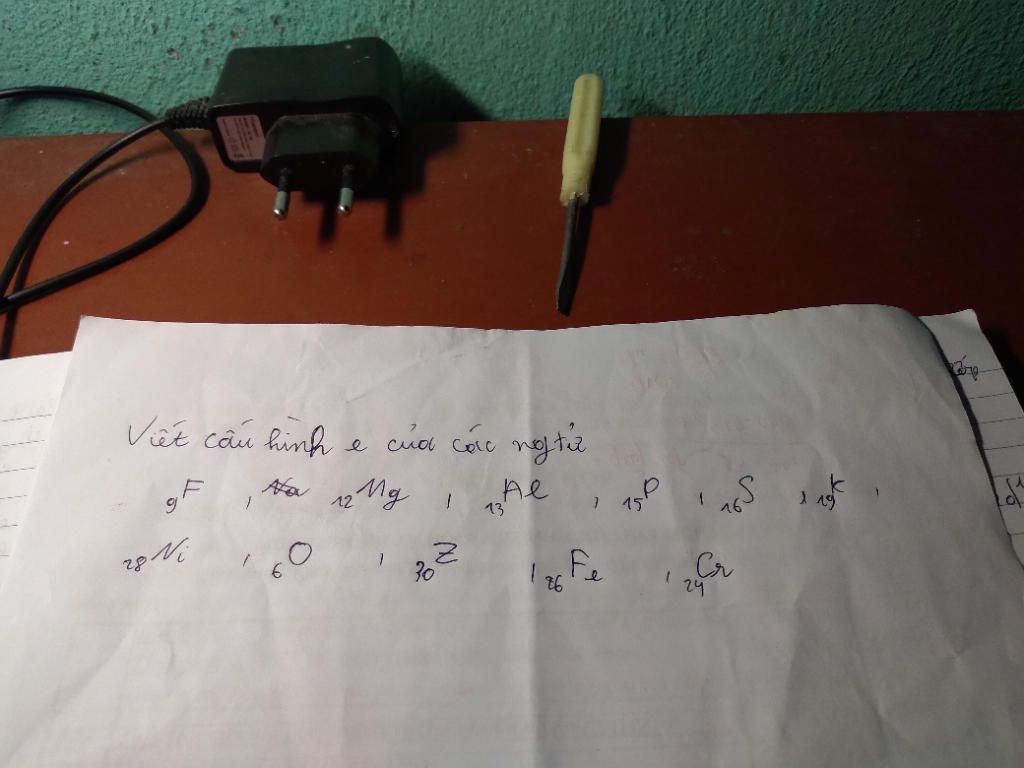 Viết cấu hình e của các ngtử
₉F , ₁₂Mg , ₁₃Al , ₁₅P , ₁₆S , ₁₉K ,
₂₈Ni , ₆O , ₃₀Z , ₂₆Fe , ₂₄Cr